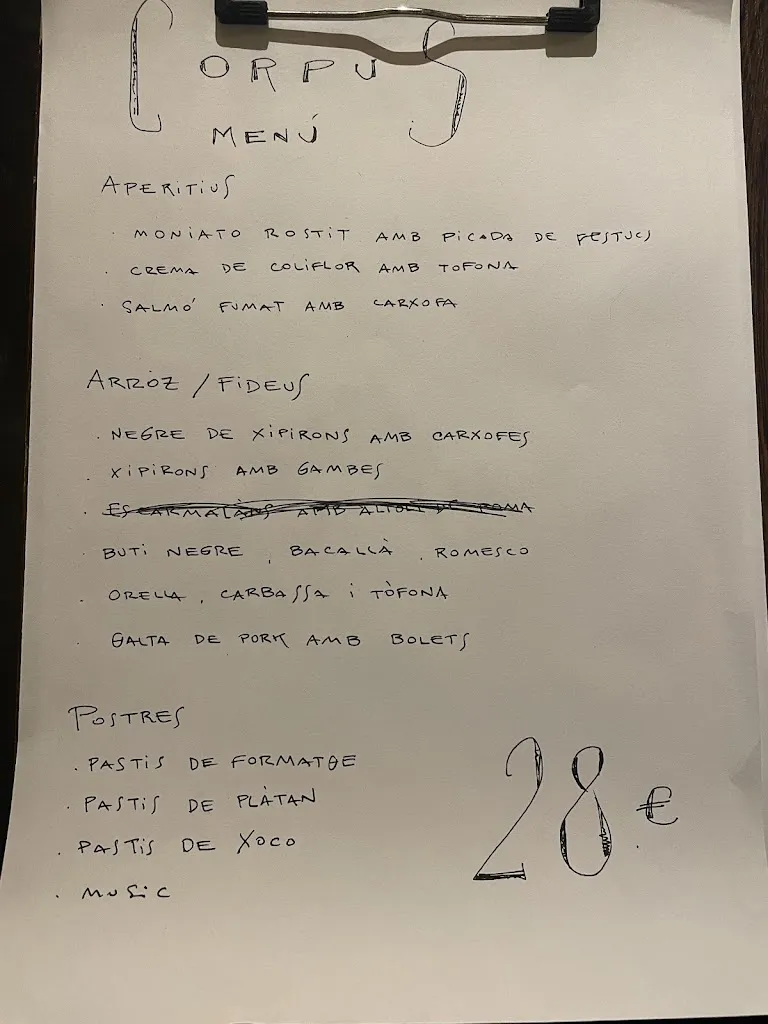 CORPUS
MENÚ
APERITIUS
· MONIATO ROSTIT AMB PICADA DE FESTUCS
· CREMA DE COLIFLOR AMB TOFONA
· SALMÓ FUMAT AMB CARXOFA
ARRÒZ / FIDEUS
· NEGRE DE XIPIRONS AMB CARXOFES
· XIPIRONS AMB GAMBES
· ESCARMALANS AMB ALIOLI DE POMA
BUTI NEGRE, BACALLÀ, ROMESCO
· ORELLA, CARBASSA i TÒFONA
· GALTA DE PORK AMB BOLETS
POSTRES
· PASTIS DE FORMATGE
· PASTIS DE PLÀTAN
· PASTIS DE XOCO
· MUSIC
28 €